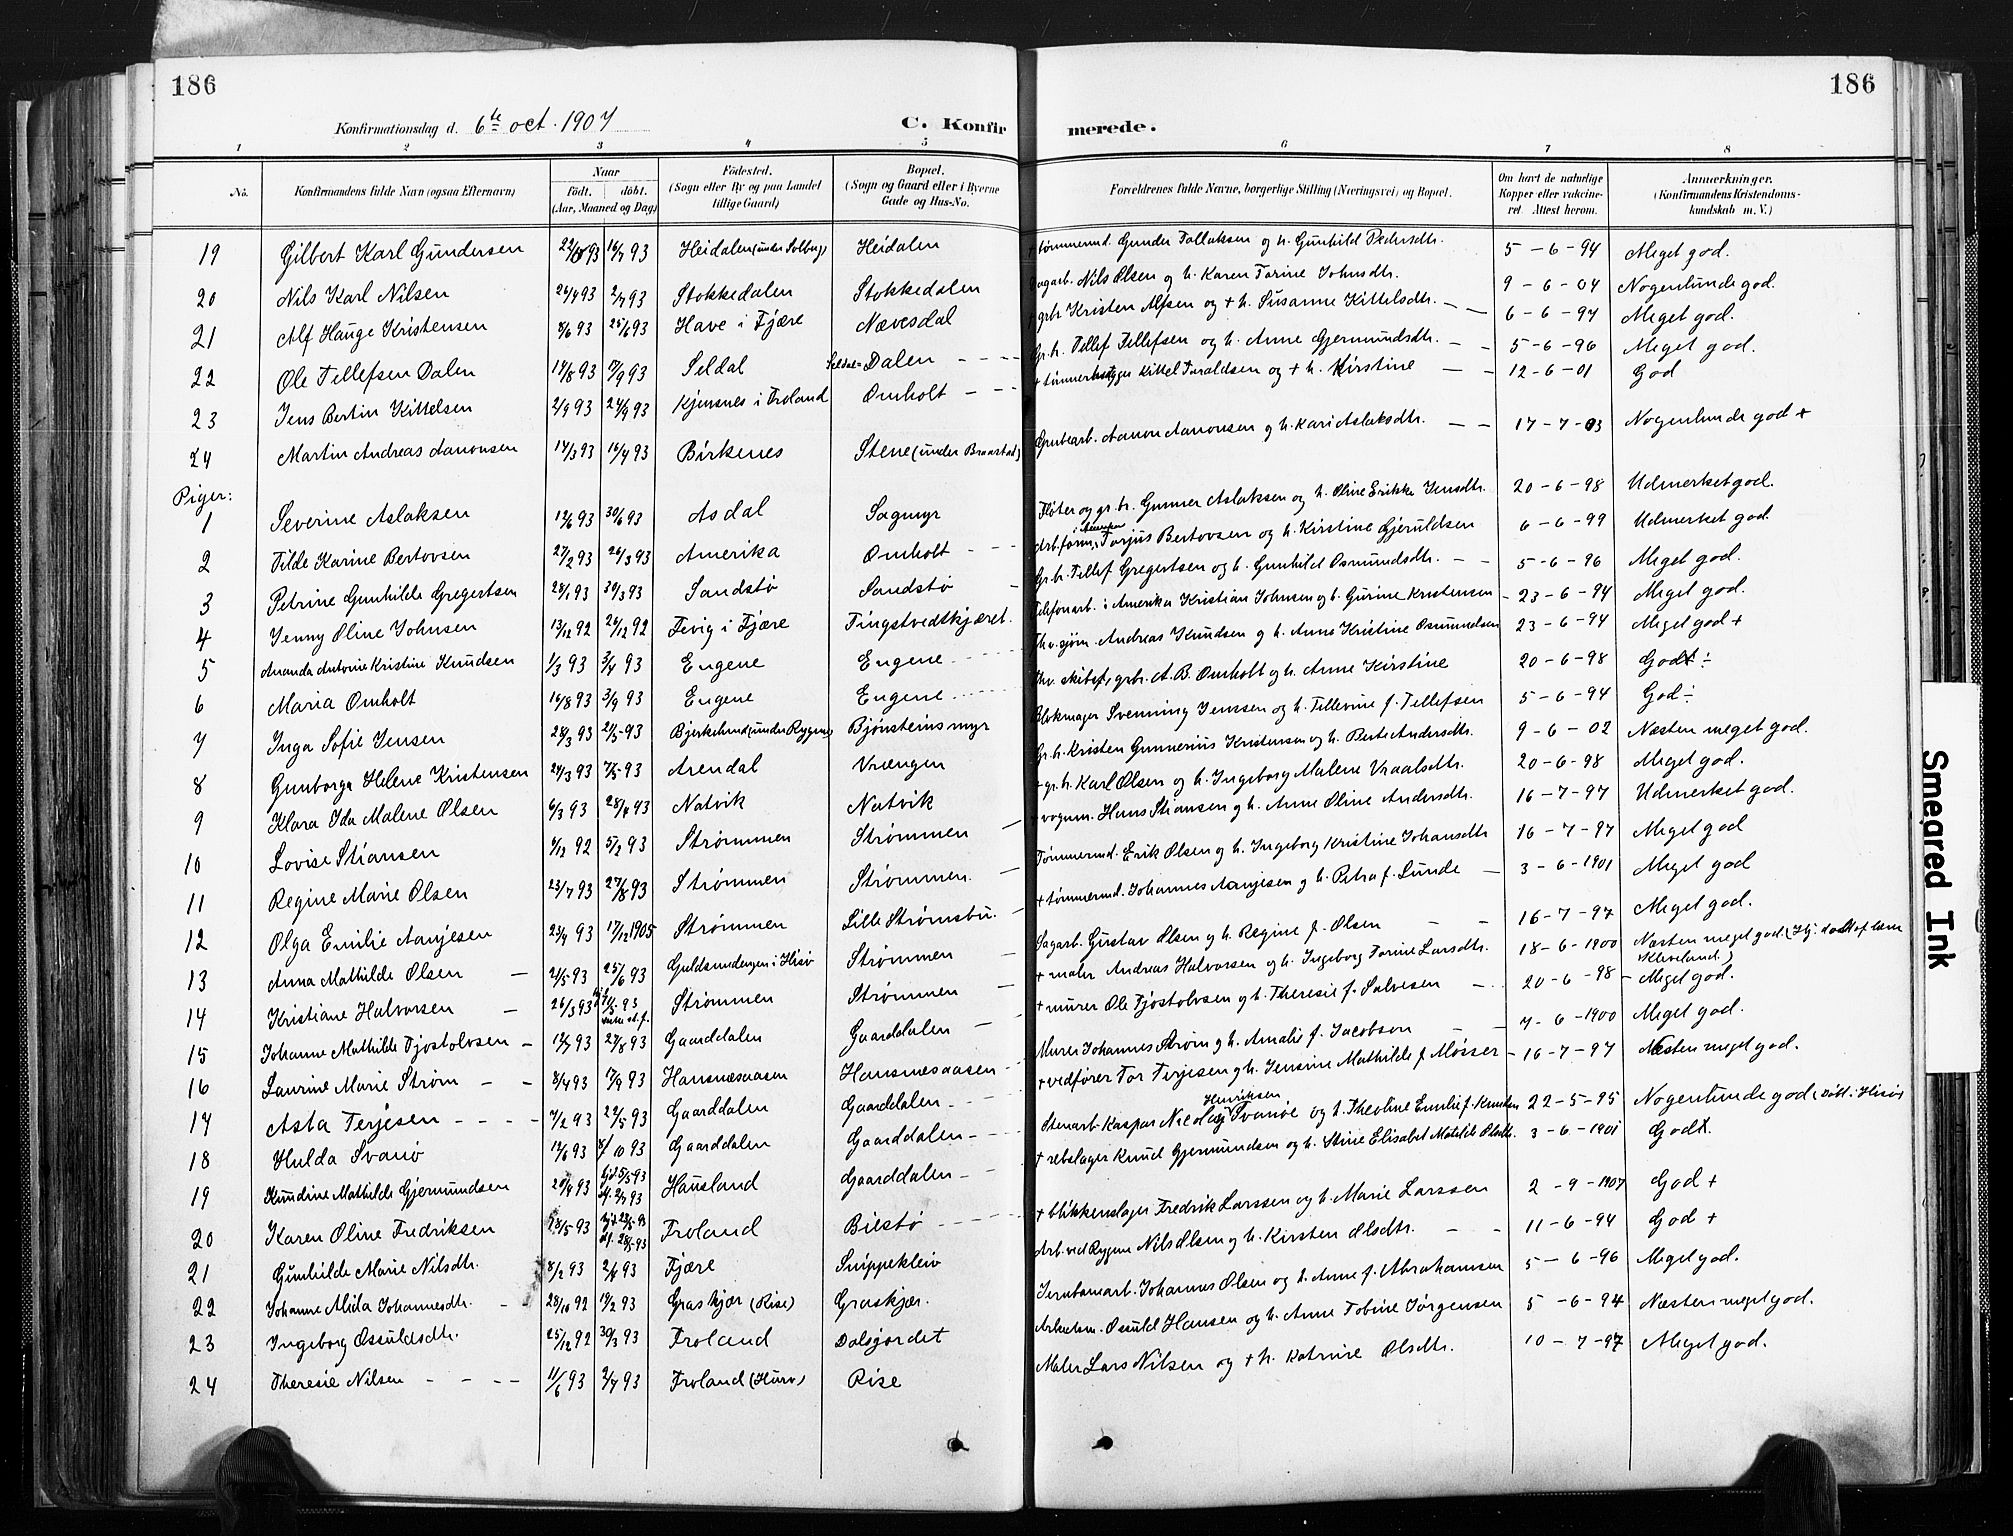 186
186
Konfirmationsdag d. 6te oct. 1907
C. Konfirmerede.
1 2 3 4 5 6 7 8
No. Konfirmandens fulde Navn (ogsaa Efternavn) Naar født. døbt. (Aar, Maaned og Dag) Fødested. (Sogn eller By og paa Landet tillige Gaard) Bopæl. (Sogn og Gaard eller i Byerne Gade og Hus-No. Forældrenes fulde Navne, borgerlige Stilling (Næringsvei) og Bopæl. Om havt de naturlige Kopper eller vakcineret. Attest herom. Anmærkninger. (Konfirmandens Kristendomskundskab m. V.)
19 Gilbert Karl Gundersen 93 16/7 93 Heidalen (under Solberg) Heidalen + tømmermd. Gunder Tallaksen og h. Gunhild Pedersdtr. 5-6-94 Meget god.
20 Nils Karl Nilsen 26/4 93 2/7 93 Stokkedalen Stokkedalen Dagarb. Nils Olsen og h. Karen Torine Johnsdtr. 9-6-04 Nogenlunde god.
21 Alf Hauge Kristensen 8/6 93 25/6 93 Have i Fjære Nævesdal + gbr. Kristen Alfsen og + h. Susanne Kittelsdtr. 6-6-97 Meget god.
22 Ole Tellefsen Dalen 14/8 93 17/9 93 Seldal Seldal=Dalen Gr.br. Tellef Tellefsen og h. Anne Gjermundsdtr. 5-6-96 Meget god.
23 Jens Bertin Kittelsen 2/9 93 24/9 93 Kjensnes i Froland Omholt + tømmerhugger Kittel Taraldsen og + h. Kirstine 12-6-01 God
24 Martin Andreas Aanonsen 14/3 93 16/4 93 Birkenes Stene (under Braastad) Grubearb. Aanon Aanonsen og h. Kari Aslaksdtr. 17-7-03 Nogenlunde god +
Piger:
1 Severine Aslaksen 12/6 93 30/6 93 Asdal Sagmyr Fløter og gr.br. Gunner Aslaksen og h. Oline Erikke Jensdtr. 20-6-98 Udmerket god.
2 Tilde Karine Bertovsen 27/2 93 26/3 93 Amerika Omholt Arb.form. i Amerika Torjus Bertovsen og h. Kirstine Gjeruldsen 6-6-99 Udmerket god.
3 Petrine Gunhilde Gregertsen 28/1 93 30/3 93 Sandstø Sandstø Gr.br. Tellef Gregertsen og h. Gunhild Osmundsdtr. 5-6-96 Meget god.
4 Jenny Oline Johnsen 13/12 92 26/12 92 Fevig i Fjære Tingstvedtkjæret. Telefonarb. i Amerika Kristian Johnsen og h. Gurine Kristensen 23-6-94 Meget god.
5 Ananda Antonie Kristine Knudsen 1/3 93 3/4 93 Engene Engene Fhv. sjøm. Andreas Knudsen og h. Anne Kristine Osmundsen 23-6-94 Meget god +
6 Maria Omholt 16/8 93 3/9 93 Engene Engene Fhv. skibsf., grbr. A. B. Omholt og h. Anne Kirstine 20-6-98 Godt ÷
7 Inga Sofie Jensen 28/3 93 21/5 93 Bjerkelund (under Rygene) Bjønsteinsmyr Blokmager Svenning Jenssen og h. Tellevine f. Tellefsen 5-6-94 God ÷
8 Gunborga Helene Kristensen 24/3 93 7/5 93 Arendal Vrængen Gr.br. Kristen Gunnerius Kristensen og h. Berte Andersdtr. 9-6-02 Næsten meget god.
9 Klara Ida Malene Olsen 6/3 93 28/4 93 Natvik Natvik + gr.br. Karl Olsen og h. Ingeborg Malene Vraalsdtr. 20-6-98 Meget god.
10 Lovise Stiansen 1/12 92 5/2 93 Strømmen Strømmen + vognm. Hans Stiansen og h. Anne Oline Andersdtr. 16-7-97 Udmerket god.
11 Regine Marie Olsen 23/7 93 27/8 93 Strømmen Strømmen. Tømmermd. Erik Olsen og h. Ingeborg Kristine Johansdtr 16-7-97 Meget god
12 Olga Emilie Aanjesen 23/4 93 17/12 1905 Strømmen Lille Strømsbu. + tømmermd. Johannes Aanjesen og h. Petra f. Lunde 3-6-1901 Meget god
13 Anna Mathilde Olsen 21/5 93 25/6 93 Guldsmedengen i Hisø Strømmen Sagarb. Gustav Olsen og h. Regine f. Olsen 16-7-97 Meget god.
14 Kristiane Halvorsen 26/3 93 93 Strømmen Strømmen + maler Andreas Halvorsen og h. Ingeborg Torine Larsdtr. 18-6-1900 Næsten meget god (Hj. døbt af lærer Kleveland.)
15 Johanne Mathilde Tjostolvsen 12/7 93 27/8 93 Gaarddalen Gaarddalen + murer Ole Tjostolvsen og h. Theresie f. Salvesen 20-6-98 Meget god.
16 Laurine Marie Strøm 8/4 93 17/9 93 Hansnesaasen Hansnesaasen Murer Johannes Strøm og h. Amalie f. Jacobson 7-6-1900 Meget god.
17 Asta Terjesen 7/2 93 22/5 93 Gaarddalen Gaarddalen + vedfører Tor Terjesen og h. Jensine Mathilde f. Møsser 16-7-97 Næsten meget god.
18 Hulda Svanø 12/6 93 8/10 93 Gaarddalen Gaarddalen Stenarb. Kaspar Nicolay Henriksen Svanøe og h. Theoline Emilie f. Knutsen 22-5-95 Nogenlunde god (Døbt i Hisø)
19 Knudine Mathilde Gjermundsen 20/4 93 hj. 25/5 93 Hausland Gaarddalen + rebslager Knud Gjermundsen og h. Stine Elisabet Matilde Olsdtr. 3-6-1901 Godt.
20 Karen Oline Fredriksen 18/5 93 Froland Biestø + blikkenslager Fredrik Larssen og h. Marie Larssen 2-9-1907 God +
21 Gunhilde Marie Nilsdtr. 8/2 93 2/4 93 Fjære Snippekleiv Arb. ved Rygene Nils Olsen og h. Kirsten Olsdtr. 11-6-94 God +
22 Johanne Alida Johannesdtr. 28/10 92 19/2 93 Graskjær (Rise) Graskjær. Jernbanearb. Johannes Olsen og h. Anne f. Abrahamsen 5-6-96 Meget god.
23 Ingeborg Osuldsdtr. 25/12 92 30/3 93 Froland Dalsjordet Arbeidsm. Osuld Hansen og h. Anne Tobine Jørgensen 5-6-94 Næsten meget god.
24 Theresie Nilsen 11/6 93 2/7 93 Froland (Hurv) Rise Maler Lars Nilsen og + h. Katrine Olsdtr. 10-7-97 Meget god.
Smeared Ink